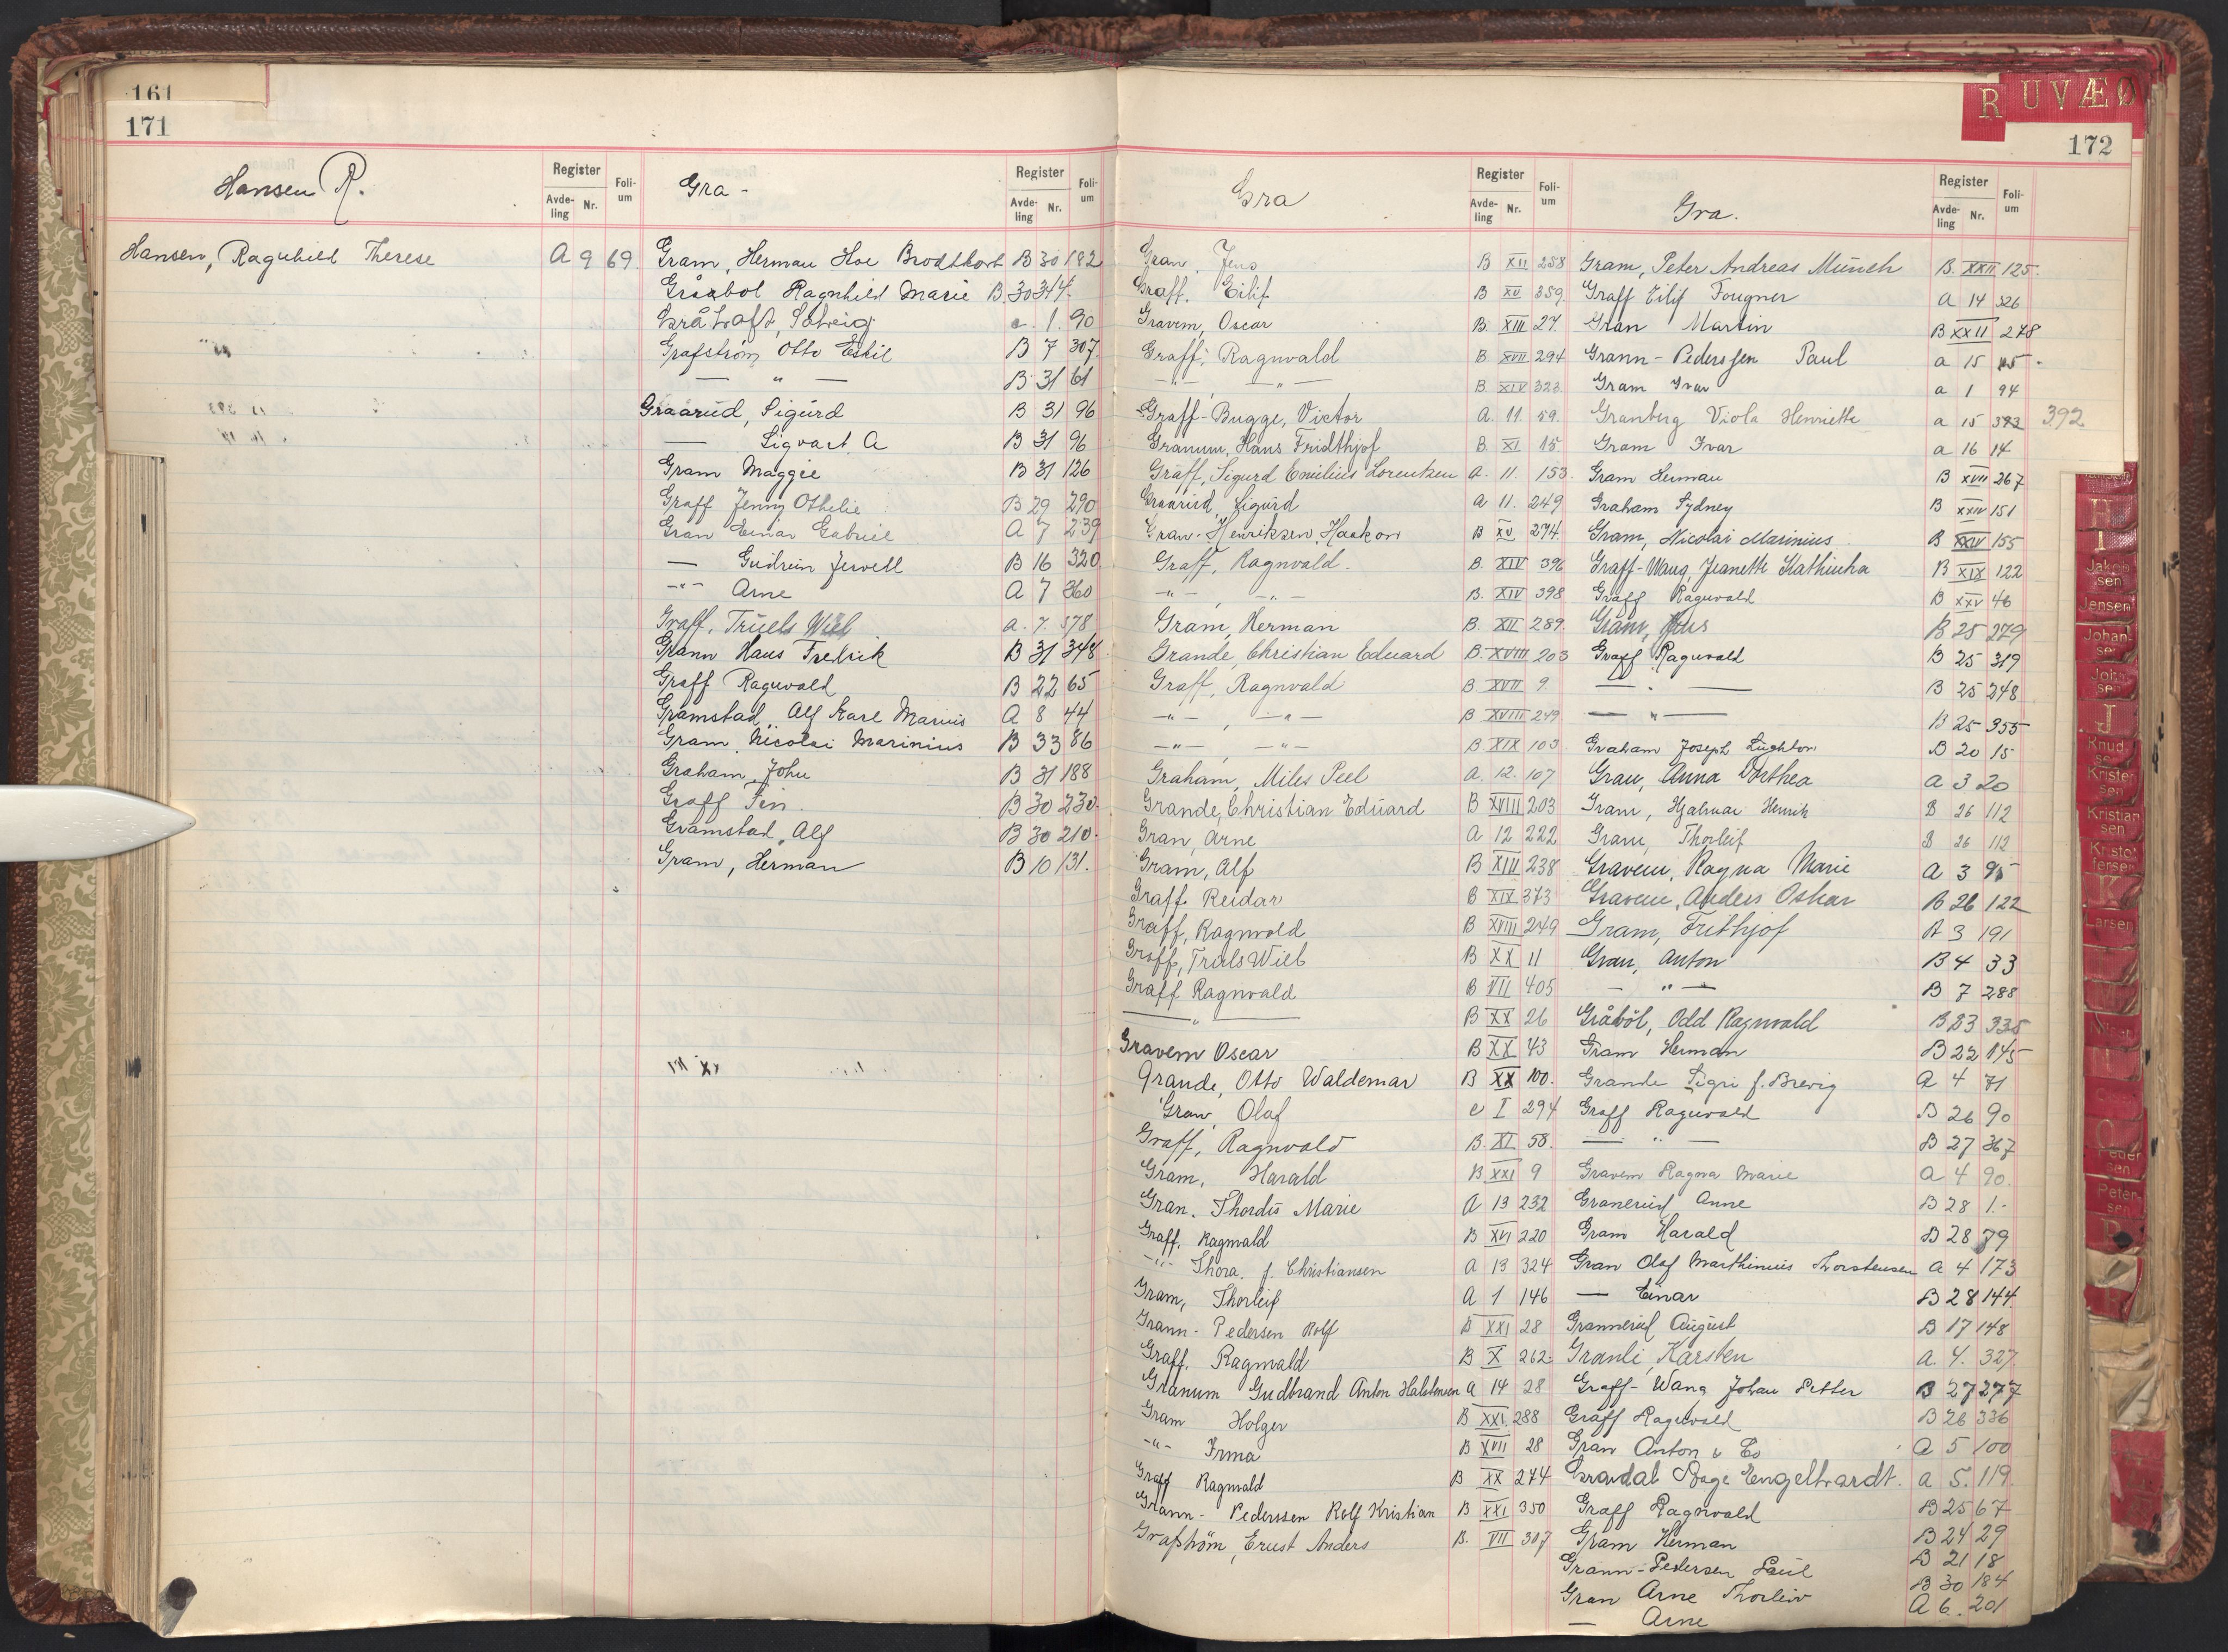 161
171
Hansen R.
Register
Avde-ling Nr. Foli-um
Hansen, Ragnhild Therese A 9 69
Gra -
Register
Avde-ling Nr. Foli-um
Gram, Herman Hoe Brodtkorb B 30 182
Gråabøl Ragnhild Marie B. 30 344
Solveig 1. 90
Grafstrøm Otto Eskil B 7 307
— " — B 31 61
Graarud, Sigurd B 31 96
— Sigvart A B 31 96
Gram Maggie B 31 126
Graff Jenny Othelie B 29 290
Gran Einar Gabriel A 7 239
— Gudrun Jervell B 16 320
-"- Arne A 7 360
Graff, Truels Wiel a. 7. 378
Grann Hans Fredrik B 31 348
Graff Ragnvald B 22 65
Gramstad, Alf Karl Marius A 8 44
Gram, Nicolai Marinius B 33 86
Graham, John B 31 188
Graff Finn B 30 230
Gramstad, Alf B 30 210
Gram, Herman B 10 131.
R U V Æ Ø
172
Gra
Register
Avde-ling Nr. Foli-um
Gran, Jens B XII 258
Graff, Eilif B XV 359
Gravem, Oscar B. XIII 27.
Graff, Ragnvald B. XVII 294
-"- -"- B. XIV 323
Graff-Bugge, Victor A. 11. 59.
Granum, Hans Fridthjof B. XI 15
Graff, Sigurd Emilius Lorentzen A. 11. 153
Graarud, Sigurd A 11. 249
Gran-Henriksen, Haakon B XV 274.
Graff, Ragnvald. B. XIV 396
-"- -"- B. XIV 398
Gram, Herman B. XII 289.
Grande, Christian Eduard B. XVIII 203
Graff, Ragnvald B XVII 9
-"- , -"- B XVIII 249
-"- , -"- B XIX 103
Graham, Miles Peel A. 12. 107
Grande, Christian Eduard B XVIII 203
Gran, Arne A 12 222
Gram, Alf B XIII 238
Graff, Reidar B XIX 373
Graff, Ragnvald B XVIII 249
Graff, Truls Wiel B XX 11
Graff Ragnvald B VII 405
— " — B XX 26
Gravem Oscar B XX 43
Grande, Otto Waldemar B XX 100.
Gran, Olaf c I 294
Graff, Ragnvald B. XI 58.
Gram, Harald B XXI 9
Gran, Thordis Marie A 13 232
Graff, Ragnvald B XVI 220
-"- Thora. f. Christiansen A 13 324
Gram, Thorleif A 1 146
Grann-Pedersen Rolf B XXI 28
Graff, Ragnvald B X 262
Granum Gudbrand Anton Halstensen A 14 28
Gram Holger B XXI 288
-"- Irma B XVII 28
Graff Ragnvald B XX 274
Grann-Pederssen Rolf Kristian B XXI 350
Grafstrøm, Ernst Anders B. VII 307
Gra.
Register
Avde-ling Nr. Foli-um
Gram, Peter Andreas Münch B. XXII 125.
Graff Eilif Fougner A 14 326
Gran Martin B XXII 278
Grann-Pederssen Paul a 15
Gram Ivar a 1 94
Granberg Viola Henriette a 15 393 392
Gram Ivar a 16 14
Gram Herman B XVIII 267
Graham Sydney B XXIV 151
Gram, Nicolai Marinius B XXIV 155
Graff-Wang, Jeanette Kathinka B XIX 122
Graff Ragnvald B XXV 46
Gram, B 25 279
Graff Ragnvald B 25 319
— " — B 25 248
— " — B 25 355
Graham Joseph Lughton B 20 15
Grau, Anna Dorthea A 3 20
Gram, Hjalmar Henrik B 26 112
Gram, Thorleif B 26 112
Gravem, Ragna Marie A 3 95
Gravem, Anders Oskar B 26 122
Gram, Frithjof A 3 191
Gran, Anton B 4 33
— " — B 7 288
Gråbøl, Odd Ragnvald B 23 335
Gram Herman B 22 145
Grande Sigri f. Brevig A 4 71
Graff Ragnvald B 26 90
— " — B 27 367
Gravem Ragna Marie A 4 90.
Granerud Anne B 28 1.
Gram Harald B 28 79
Gran Olaf Marthinius Thorstensen A 4 173
— Einar B 28 144
Grannerud August B 17 148
Granli, Karsten A. 4. 327
Graff-Wang Johan Petter B 27 277
Graff Ragnvald B 26 336
Gran Anton & Co A 5 100
Gravdal Aage Engelhardt. A 5. 119
Graff Ragnvald B 25 67
Gram Herman B 24 29
Grann-Pedersen Paul B 21 18
Gran Arne Thorleiv B 30 184
— Arne A 6. 201
H
I
Jakobsen
Jensen
Johansen
Johnsen
J
Knudsen
Kristensen
Kristiansen
Kristoffersen
K
Larsen
N
O
Pedersen
Petersen
P